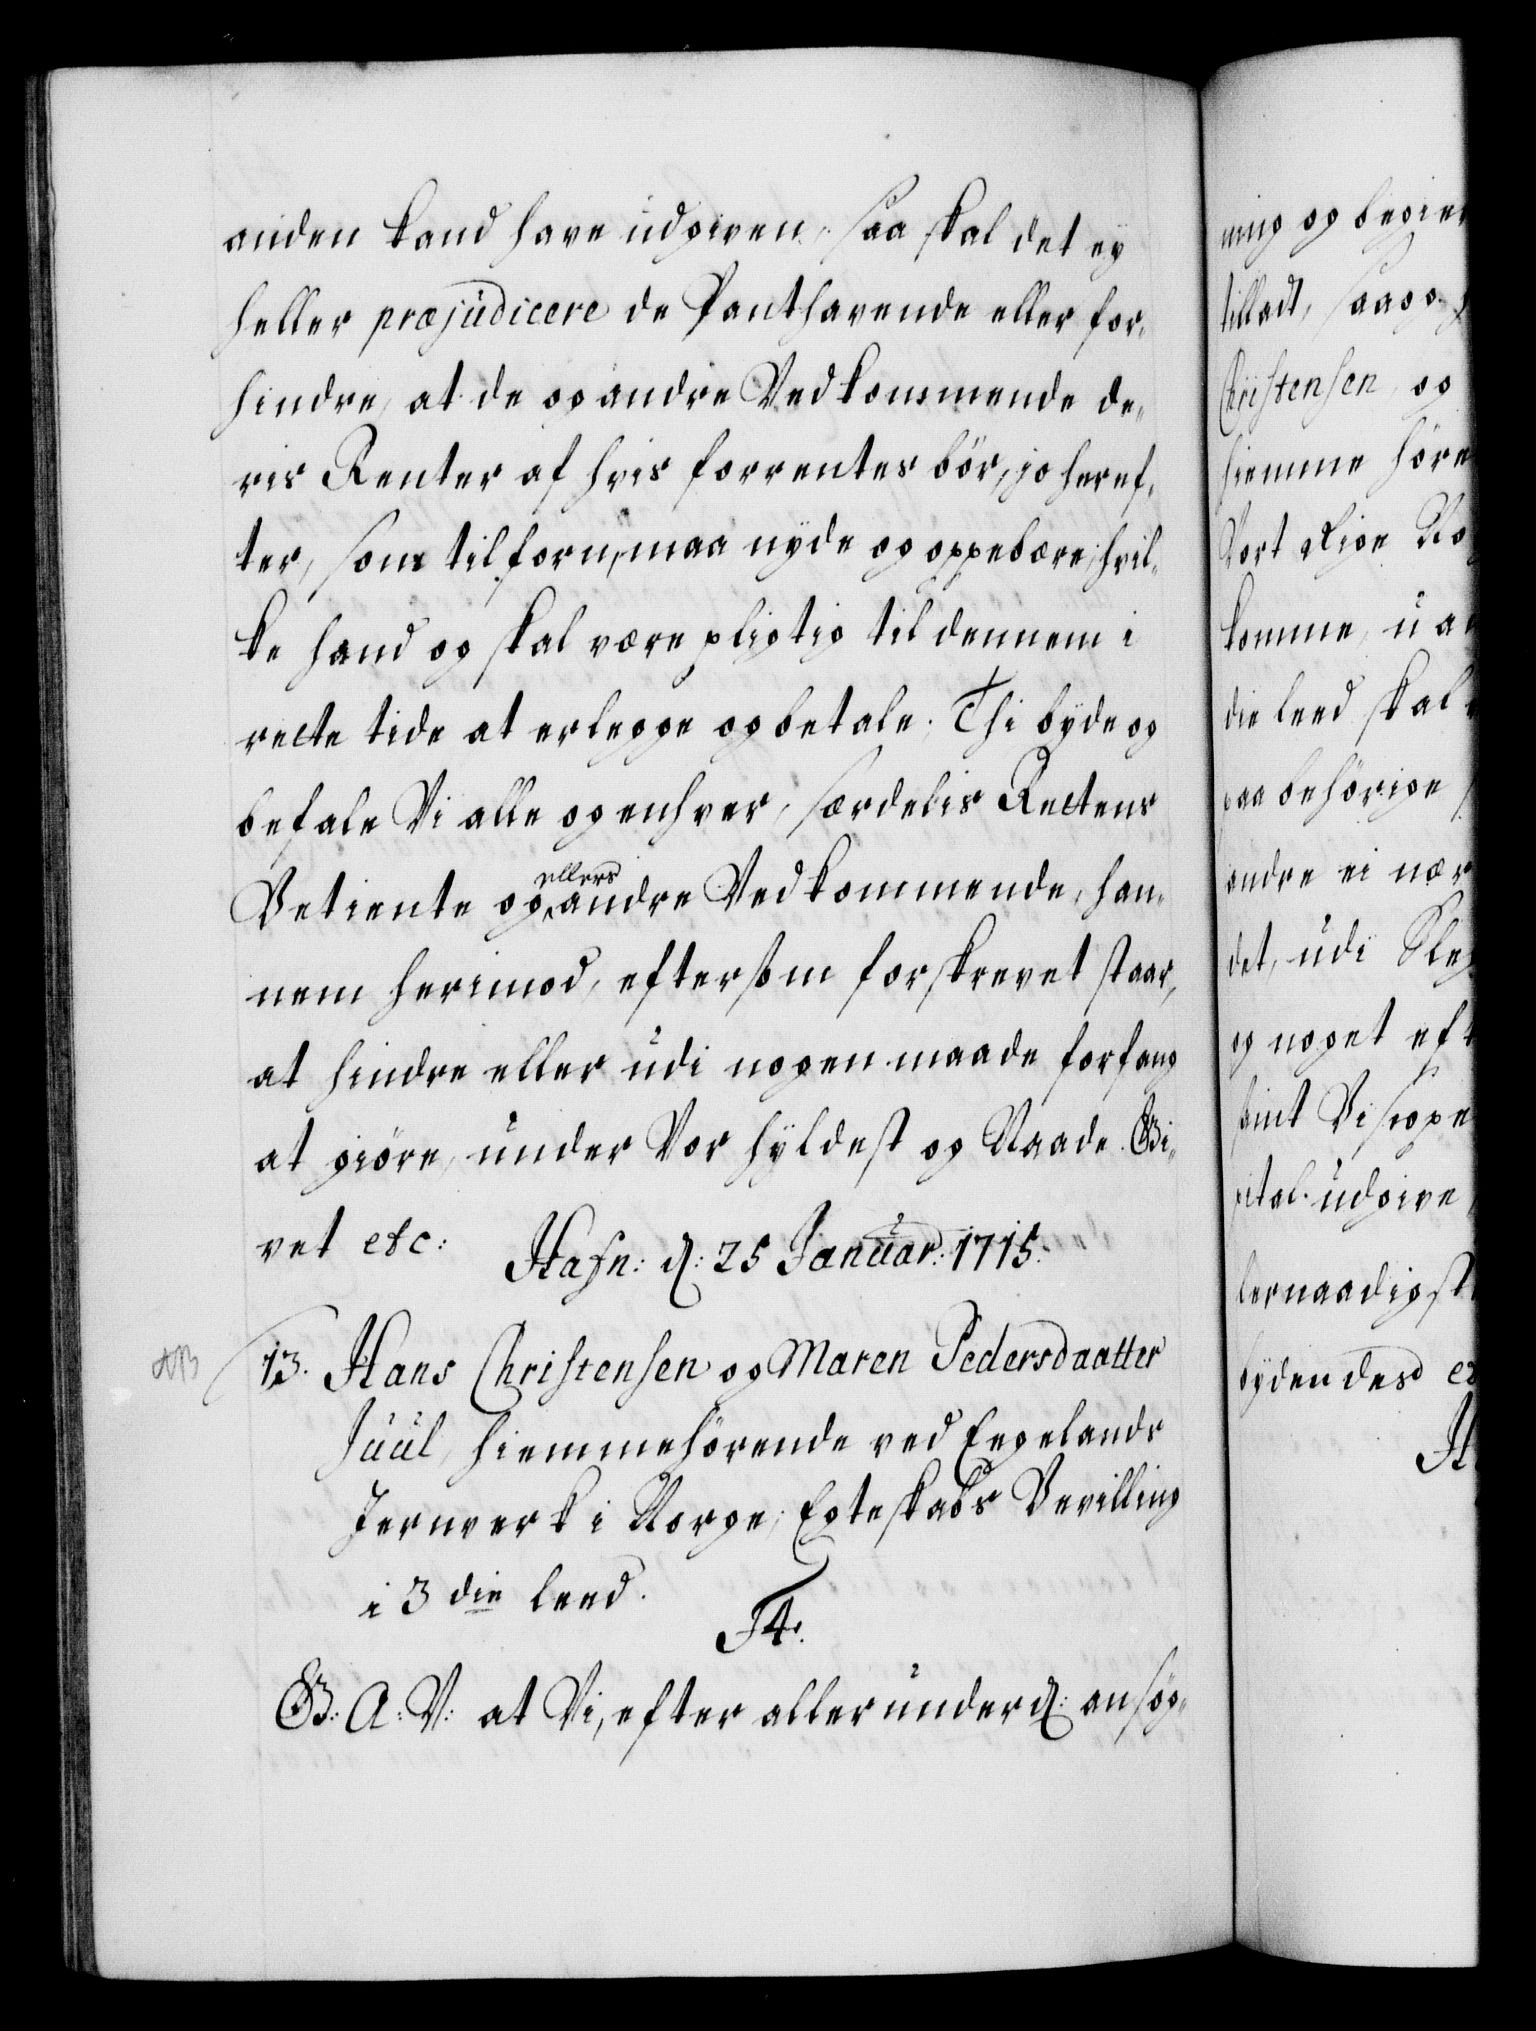 anden kand have udgiven, saa skal det ey
heller præjudicere de Panthavende eller for-
hindre, at de og andre Vedkommende de-
ris Renter af hvis forrentes bör, jo heref-
ter, som tilforn, maa nyde og oppebære, hvil-
ke hand og skal være pligtig til dennem i
rette tide at erlegge og betale. Thi byde og
befale Vi alle og enhver, særdelis Rettens
Betiente og ellers andre Vedkommende, han-
nem herimod, eftersom forskrevet staar,
at hindre eller udi nogen maade forfang
at giöre, under Vor hyldest og Naade. Gi-
vet etc:
Hafn: d: 25 Januar: 1715.
AB
13. Hans Christensen og Maren Pedersdaatter
Juul, hiemmehörende ved Eegelands
Jernverk i Norge, Egteskabs Bevilling
i 3 die leed.
F4.
G: A: V: at Vi, efter allerunderd: ansög-
ning og begier
tilladt, saa og
Christensen, og
hiemme höre
Vort Rige No
komme, u a
die leed skal
paa behörige
andre ei nær
det, udi
og noget eft
samt Vi
pital. udgive,
lernaadigst
bydendes
H